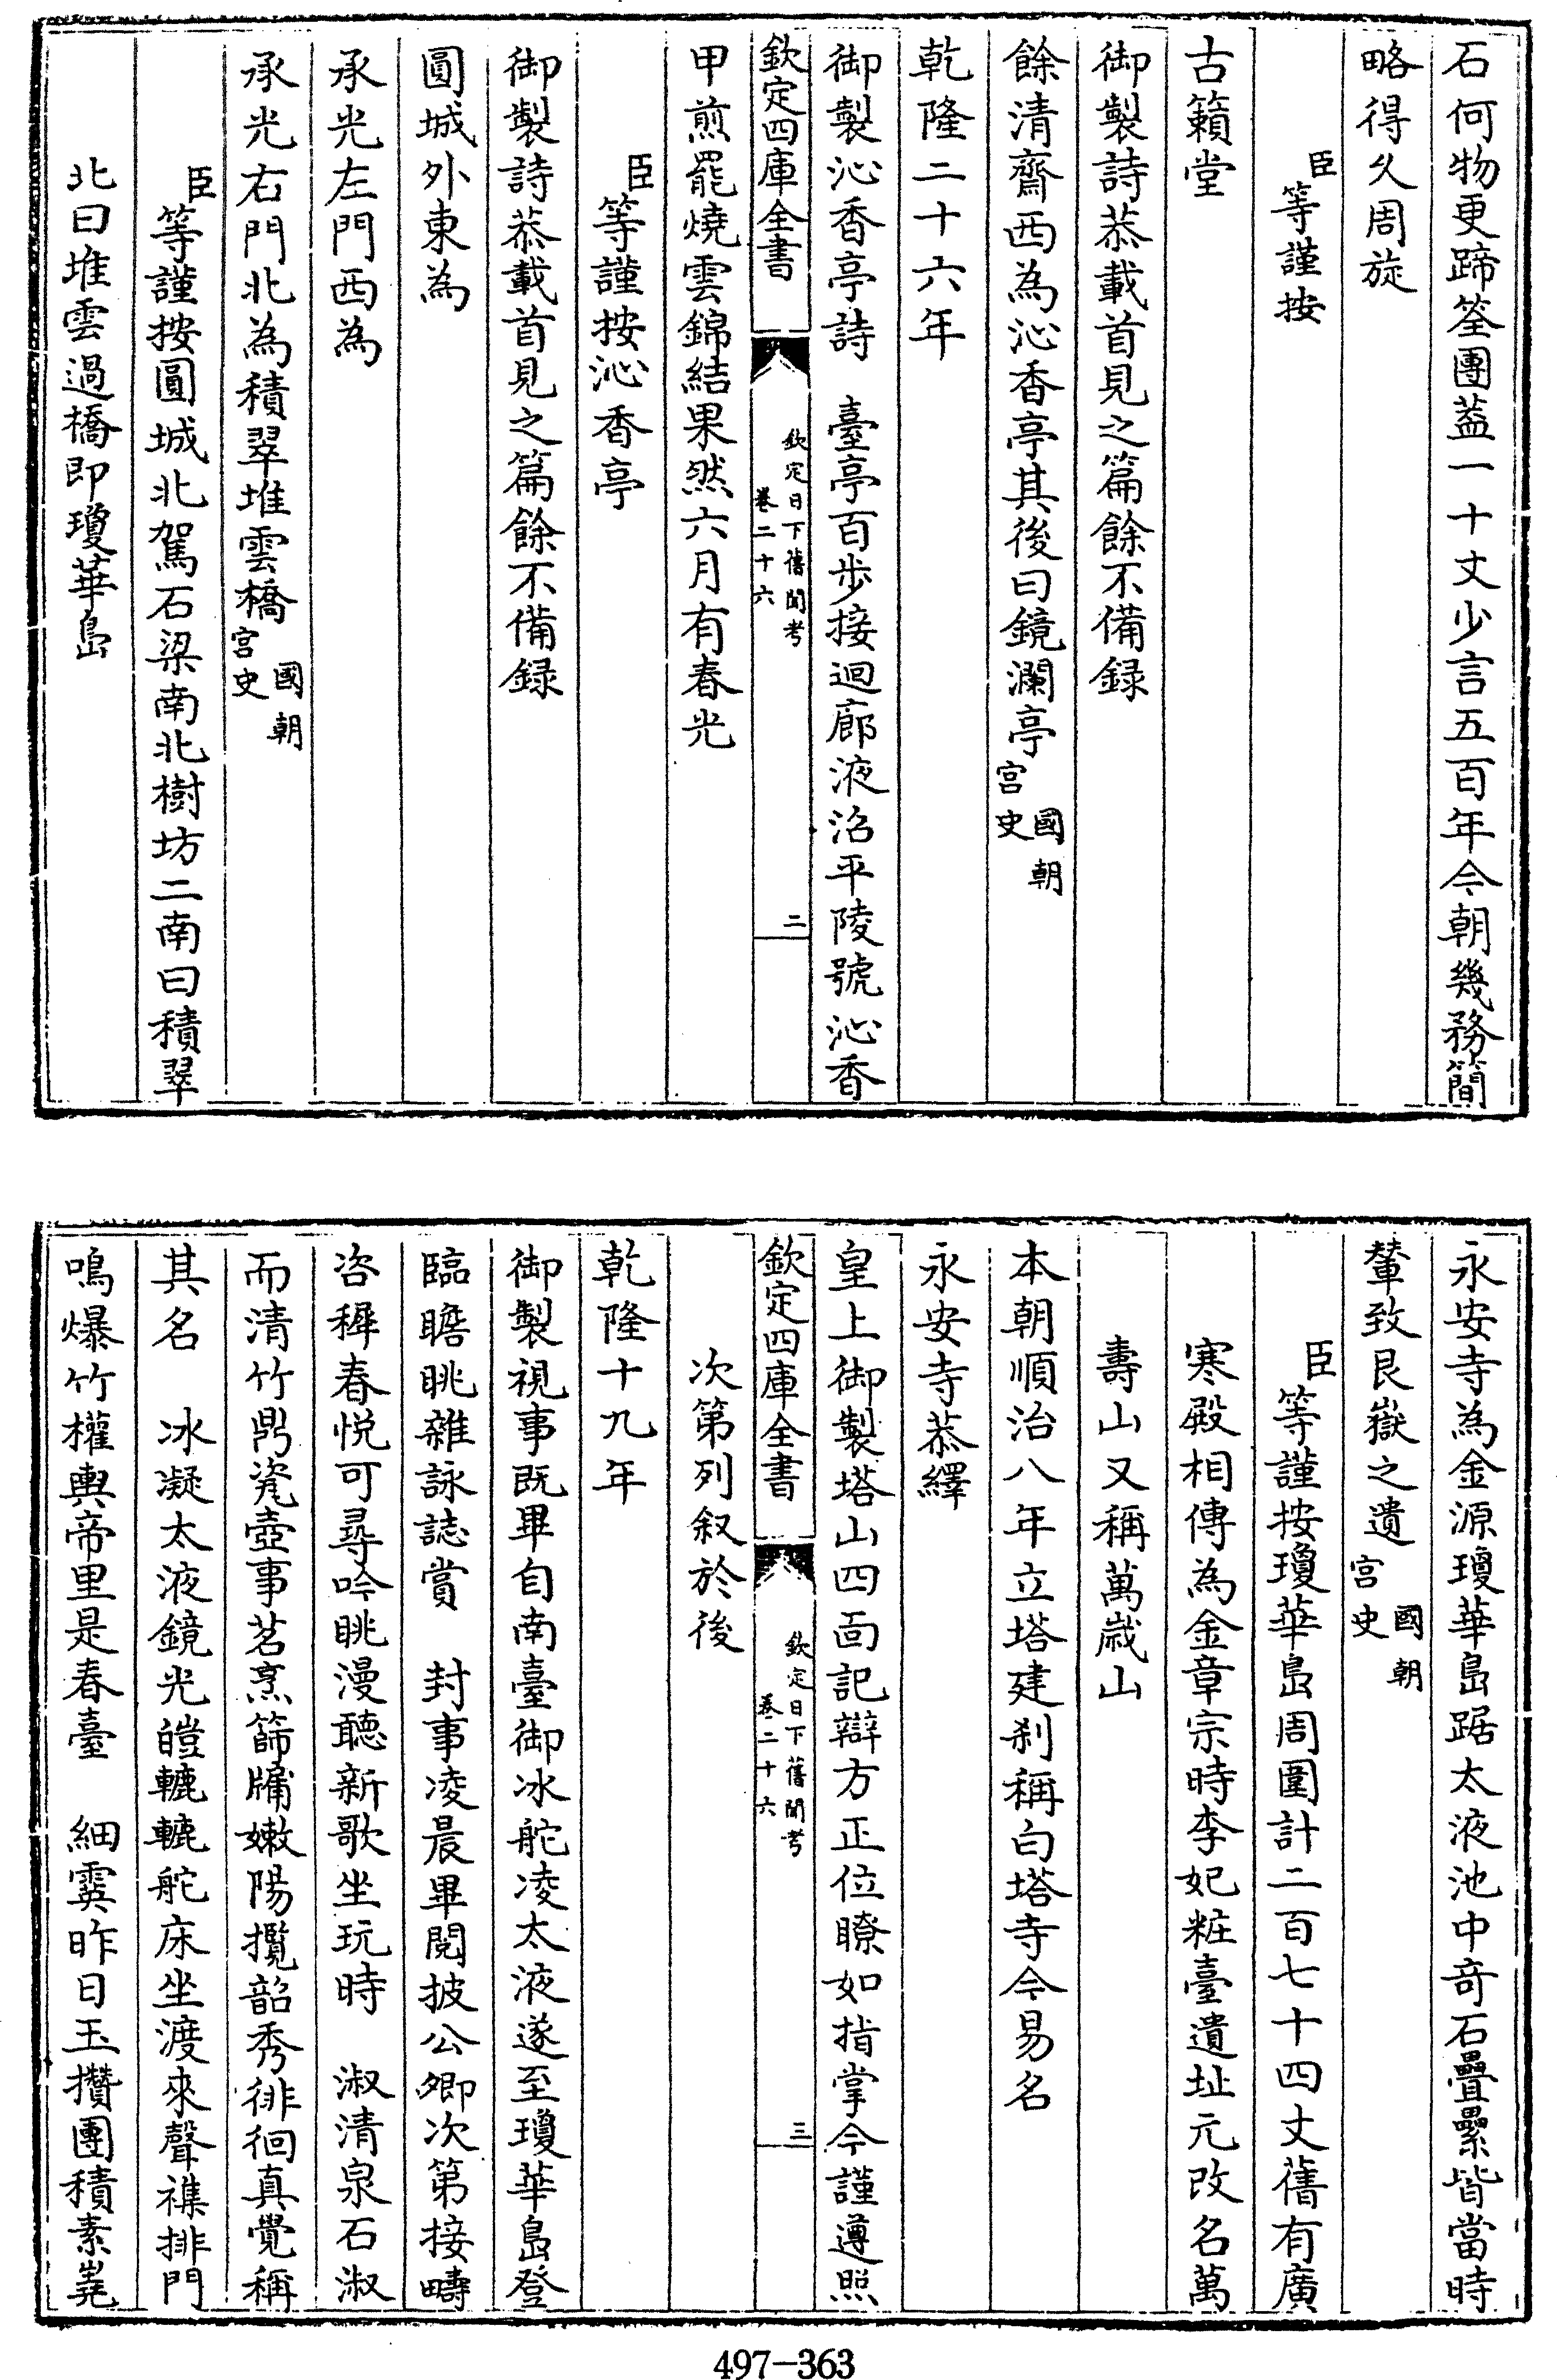 石何物更蹄筌團葢一十丈少言五百年今朝幾務簡
略得久周旋
臣等謹按
古籟堂
御製詩恭載首見之篇餘不備録
餘清齋西為沁香亭其後曰鏡瀾亭國朝宫史
乾隆二十六年
御製沁香亭詩　臺亭百步接迴廊液沼平陵號沁香
欽定四庫全書
欽定日下舊聞考
卷二十六
二
甲煎罷燒雲錦結果然六月有春光
臣等謹按沁香亭
御製詩恭載首見之篇餘不備録
圓城外東為
承光左門西為
承光右門北為積翠堆雲橋國朝宫史
臣等謹按圓城北駕石梁南北樹坊二南曰積翠
北曰堆雲過橋即瓊華島
永安寺為金源瓊華島踞太液池中竒石疊纍皆當時
輦致艮嶽之遺國朝宫史
臣等謹按瓊華島周圍計二百七十四丈舊有廣
寒殿相傳為金章宗時李妃粧臺遺址元改名萬
壽山又稱萬歲山
本朝順治八年立塔建刹稱白塔寺今易名
永安寺恭繹
皇上御製塔山四面記辯方正位瞭如指掌今謹遵照
欽定四庫全書
欽定日下舊聞考
卷二十六
三
次第列叙於後
乾隆十九年
御製視事既畢自南臺御冰舵凌太液遂至瓊華島登
臨瞻眺雜詠誌賞　封事凌晨畢閲披公卿次第接疇
咨穉春悦可尋吟眺漫聽新歌坐玩時　淑清泉石淑
而清竹鼎瓷壺事茗烹篩牖嫩陽攬韶秀徘徊真覺稱
其名　冰凝太液鏡光皚轆轆舵床坐渡來聲襍排門
鳴爆竹權輿帝里是春臺　細霙昨日玉攢團積素嵬
497-363